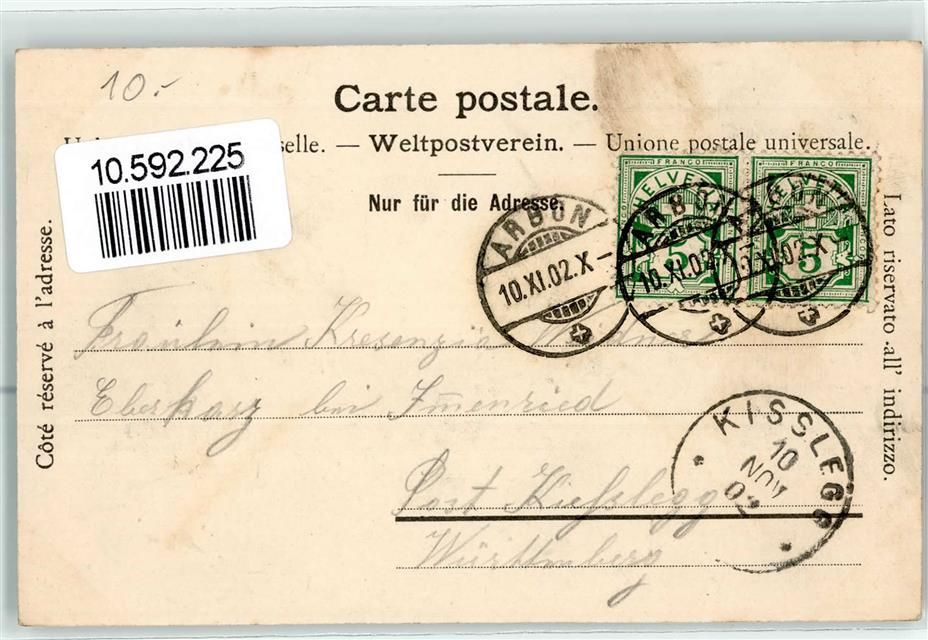 10.-
Carte postale.
10.592.225
selle. — Weltpostverein. — Unione postale universale.
Nur für die Adresse.
Côté réservé à l'adresse.
Lato riservato all' indirizzo.
FRANCO FRANCO
HELVETIA HELVETIA
5 5
ARBON
10.XI.02.X-
ARBON
10.XI.02.X-
ARBON
10.XI.02.X
Fräulein Kresenzia
Eberharz bei Immenried
Post Kißlegg
Württemberg
KISSLEGG
10
NOV
02